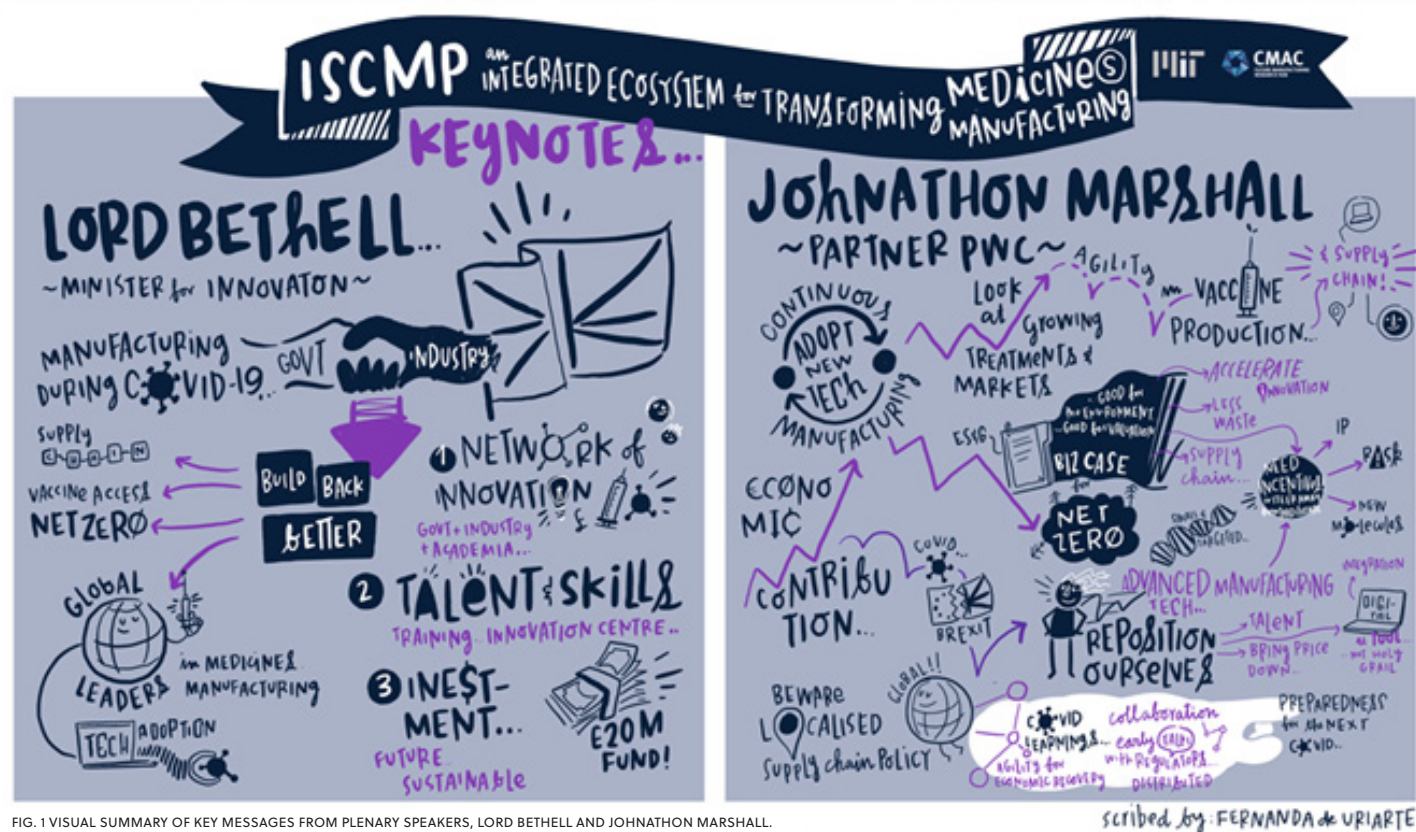 ISCMP an INTEGRATED ECOSYSTEM for TRANSFORMING MEDICINES MANUFACTURING
MIT
CMAC
KEYNOTES...
LORD BETHELL...
~MINISTER for INNOVATON~
MANUFACTURING
DURING COVID-19...
GOVT
INDUSTRY
SUPPLY
CHAIN
VACCINE ACCESS
NET ZERO
BUILD BACK
BETTER
GLOBAL
LEADERS
in MEDICINES
MANUFACTURING
TECH ADOPTION
1 NETWORK of
INNOVATION
GOVT + INDUSTRY
+ ACADEMIA...
2 TALENT & SKILLS
TRAINING.. INNOVATION CENTRE..
3 INE$T-
MENT...
FUTURE..
SUSTAINABLE
£20M
FUND!
JOHNATHON MARSHALL
~PARTNER PWC~
CONTINUOUS
MANUFACTURING
ADOPT
NEW
TECH
LOOK
at
GROWING
TREATMENTS &
MARKETS
AGILITY
in VACCINE
PRODUCTION...
& SUPPLY
CHAIN!
ESSG
..GOOD for
ENVIRONMENT
..GOOD for VALUATION
BIZ CASE
for
NET
ZERO
ACCELERATE
INNOVATION
LESS
WASTE
SUPPLY
chain...
NEED
INCENTIVES
IP
RASK
NEW
MOLECULES
TARGETED...
ECONO
MIC
CONTRIBU
TION...
COVID...
BREXIT
ADVANCED MANUFACTURING
TECH...
REPOSITION
OURSELVES
TALENT
BRING PRICE
DOWN...
INTEGRATION
DIGI-
TAL
as TOOL...
not HOLY
GRAIL
BEWARE
LOCALISED
Supply chain Policy
GLOBAL!!
COVID
LEARNINGS...
AGILITY for
ECONOMIC RECOVERY
collaboration
early TALKS
with REGULATORS...
DISTRIBUTED
PREPAREDNESS
for the NEXT
COVID...
FIG. 1 VISUAL SUMMARY OF KEY MESSAGES FROM PLENARY SPEAKERS, LORD BETHELL AND JOHNATHON MARSHALL.
scribed by: FERNANDA de URIARTE